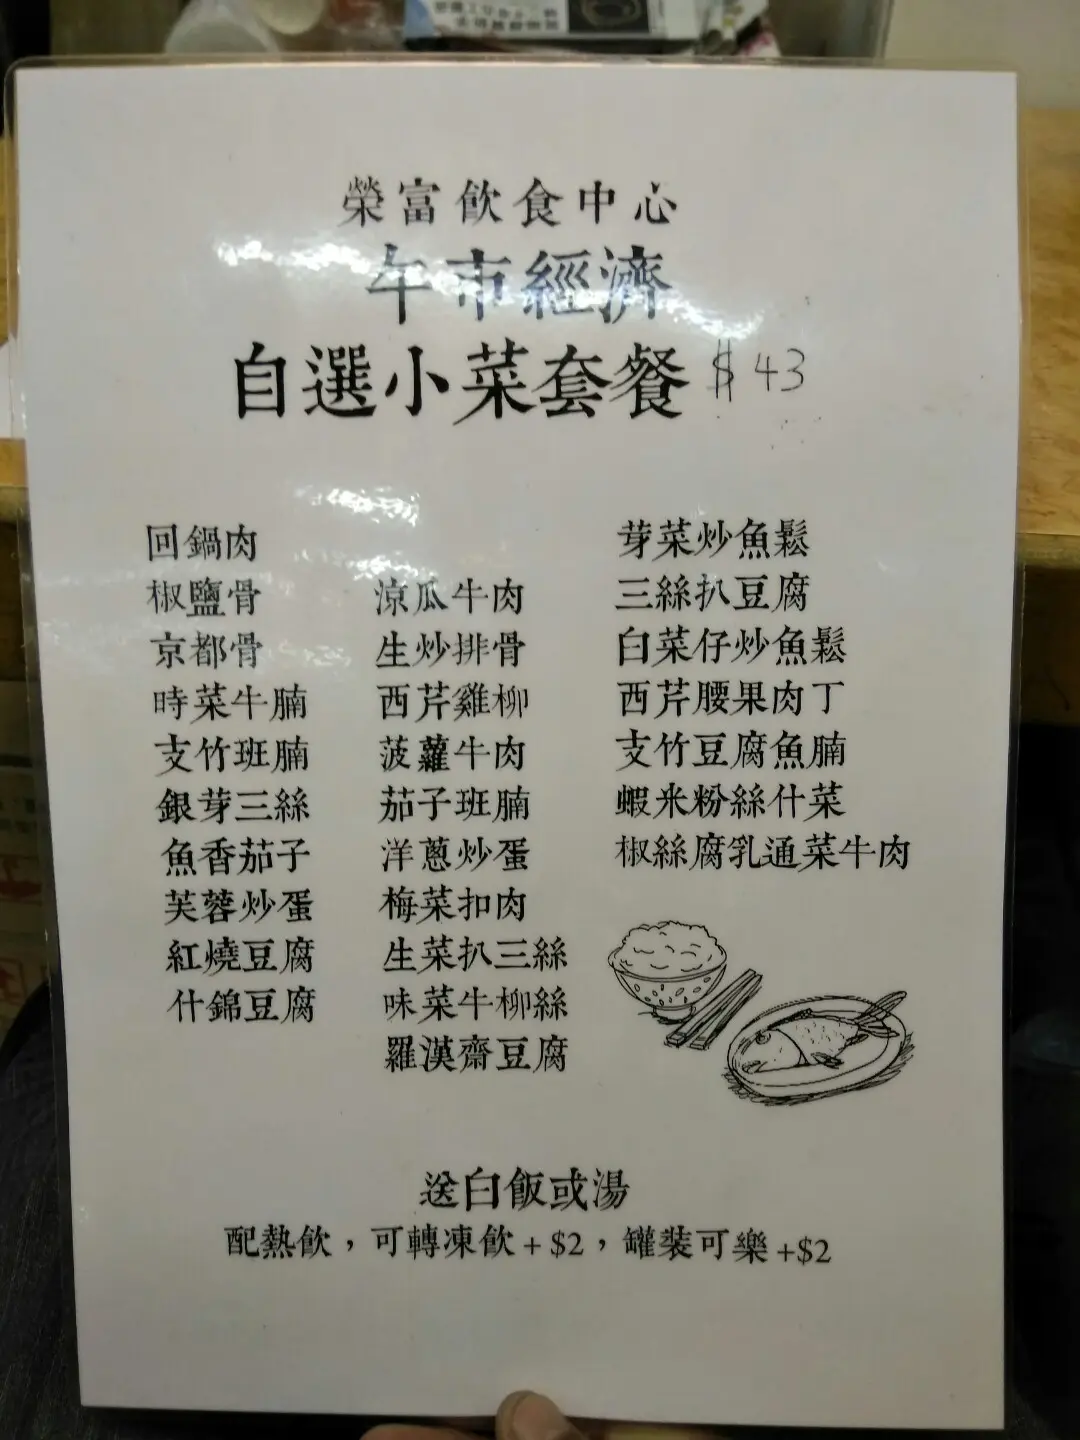 榮富飲食中心
午市經濟
自選小菜套餐 $43
回鍋肉
椒鹽骨
京都骨
時菜牛腩
支竹班腩
銀芽三絲
魚香茄子
芙蓉炒蛋
紅燒豆腐
什錦豆腐
涼瓜牛肉
生炒排骨
西芹雞柳
菠蘿牛肉
茄子班腩
洋蔥炒蛋
梅菜扣肉
生菜扒三絲
味菜牛柳絲
羅漢齋豆腐
芽菜炒魚鬆
三絲扒豆腐
白菜仔炒魚鬆
西芹腰果肉丁
支竹豆腐魚腩
蝦米粉絲什菜
椒絲腐乳通菜牛肉
送白飯或湯
配熱飲，可轉凍飲+$2，罐裝可樂+$2